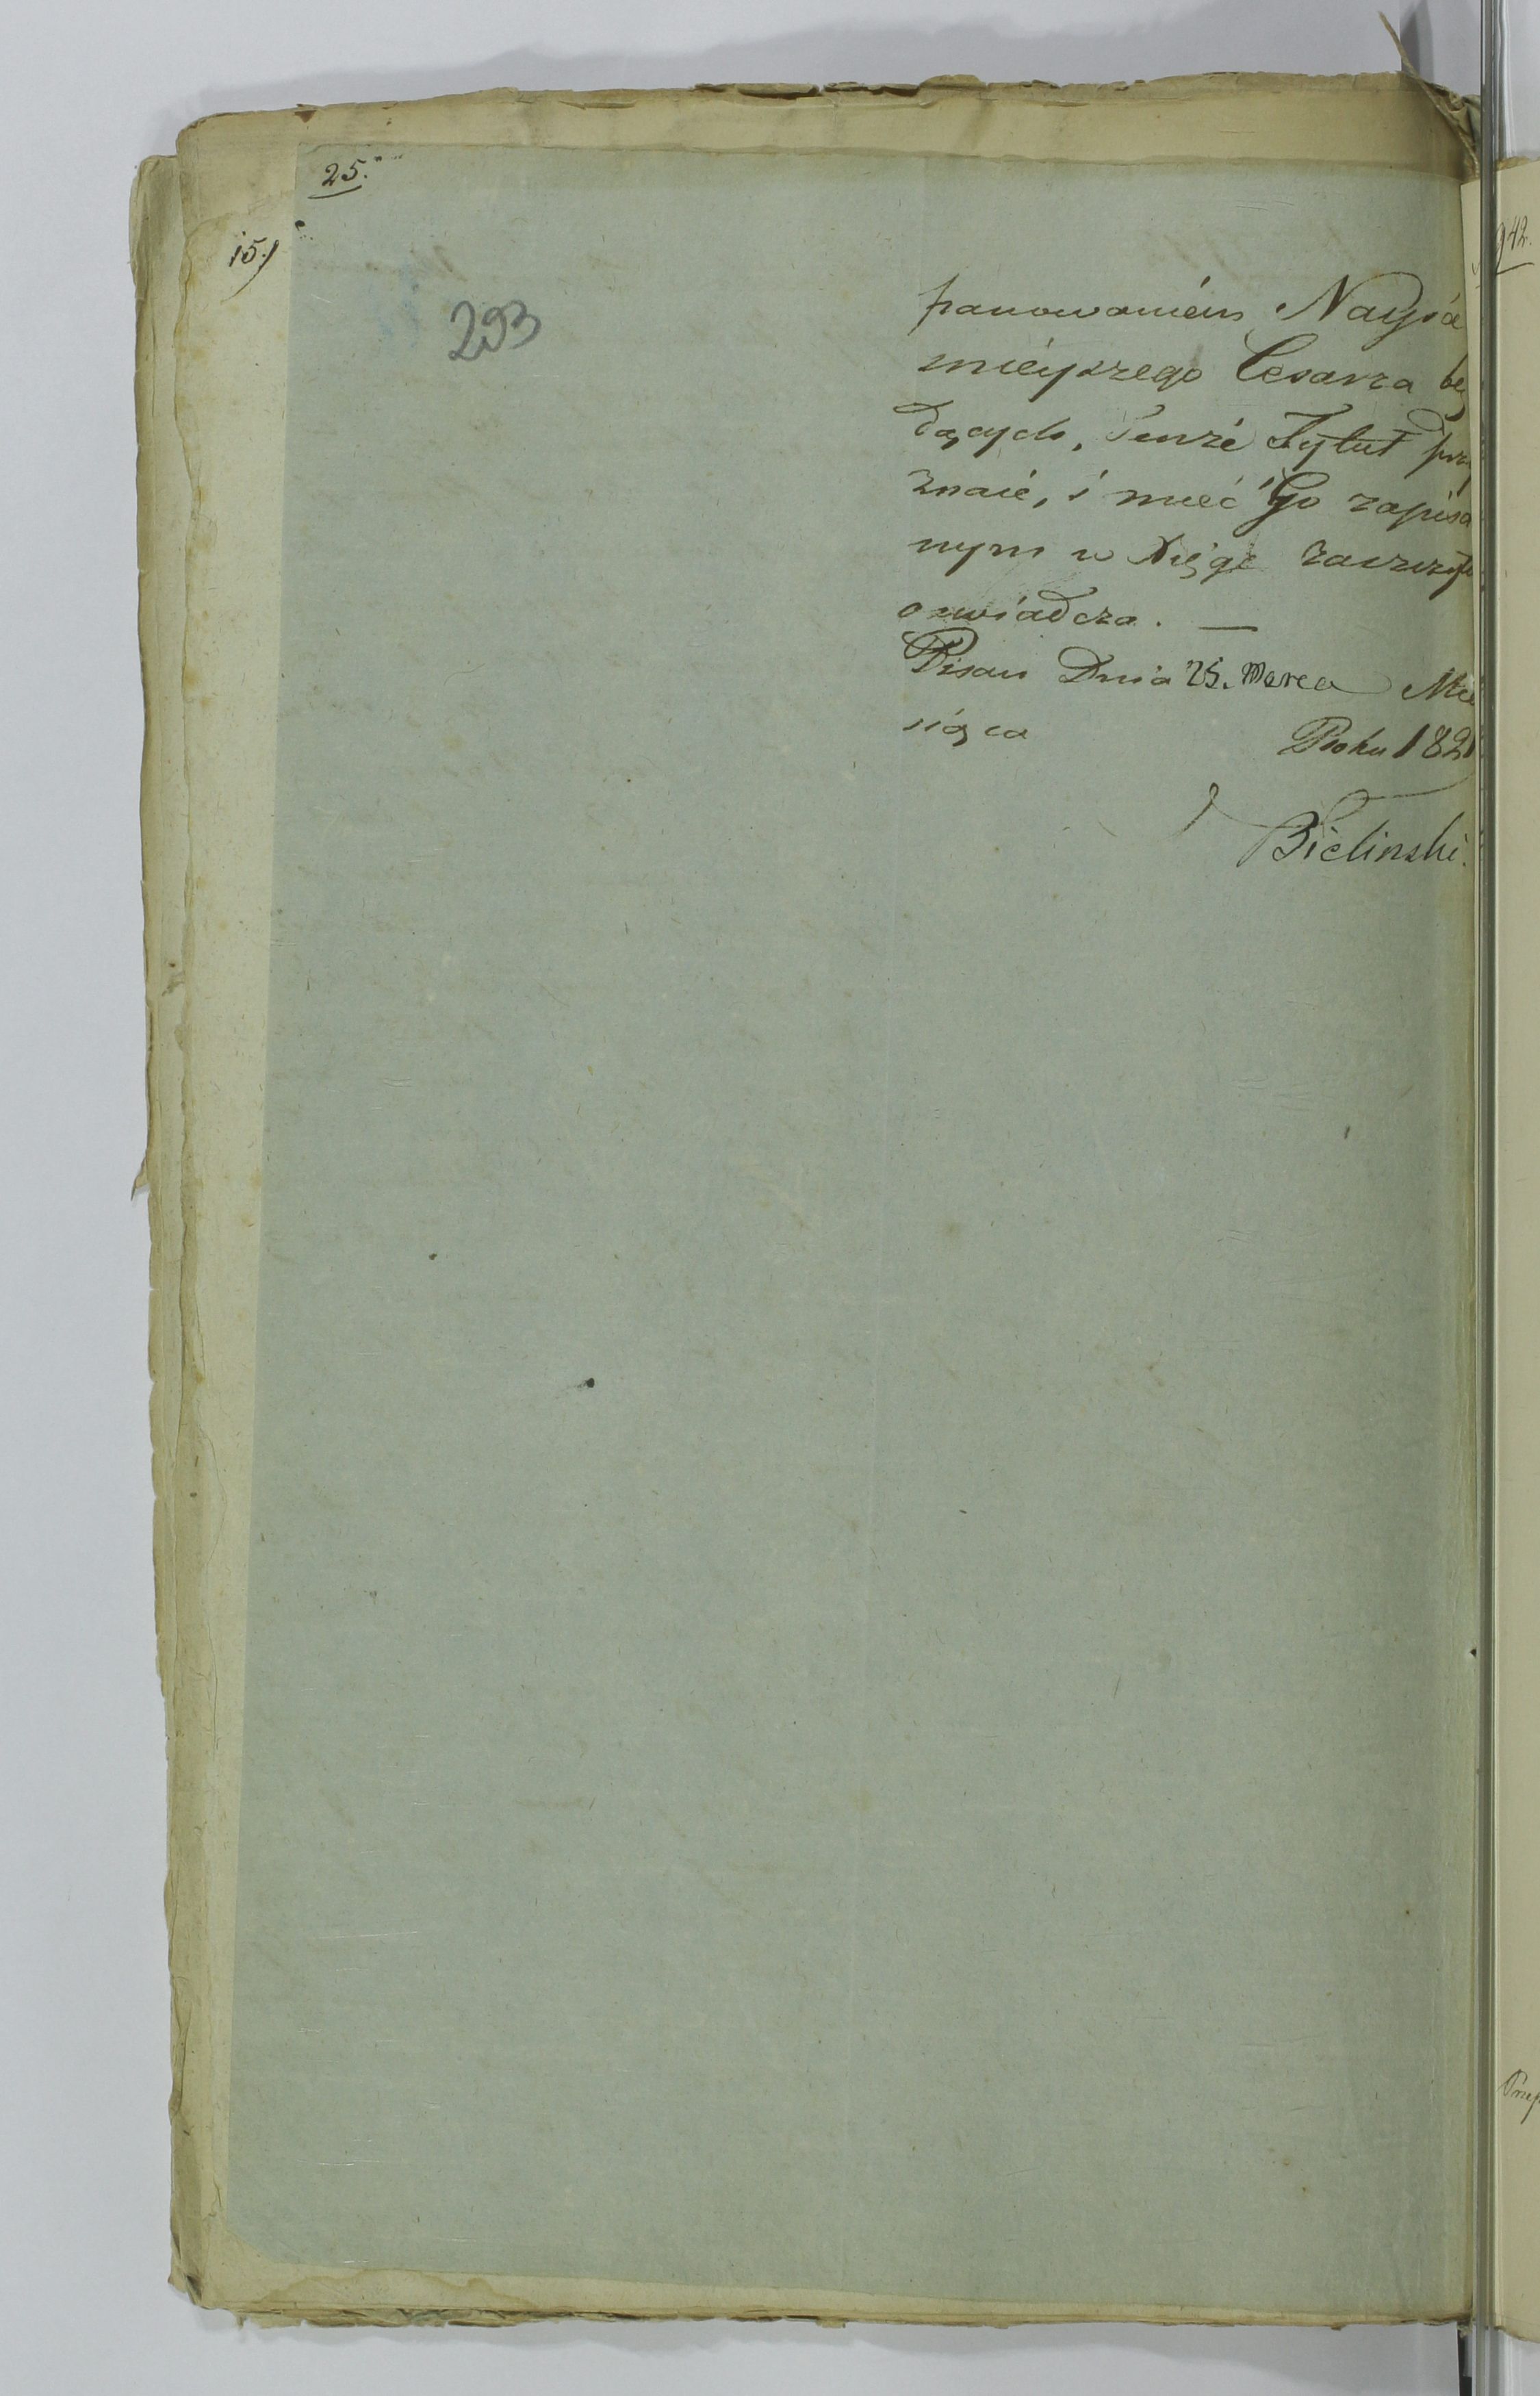 25.
15./
293
942.
panowaniem Nayja
śnieyszego Cesarza bę
dących, Tenże Tytuł prz
znaie, i mieć Go zapisa
nym w Xięgę zaszczytu
oświadcza. —
Pisan Dnia 25. Marca Mie
siąca Roku 1821
Bielinski.